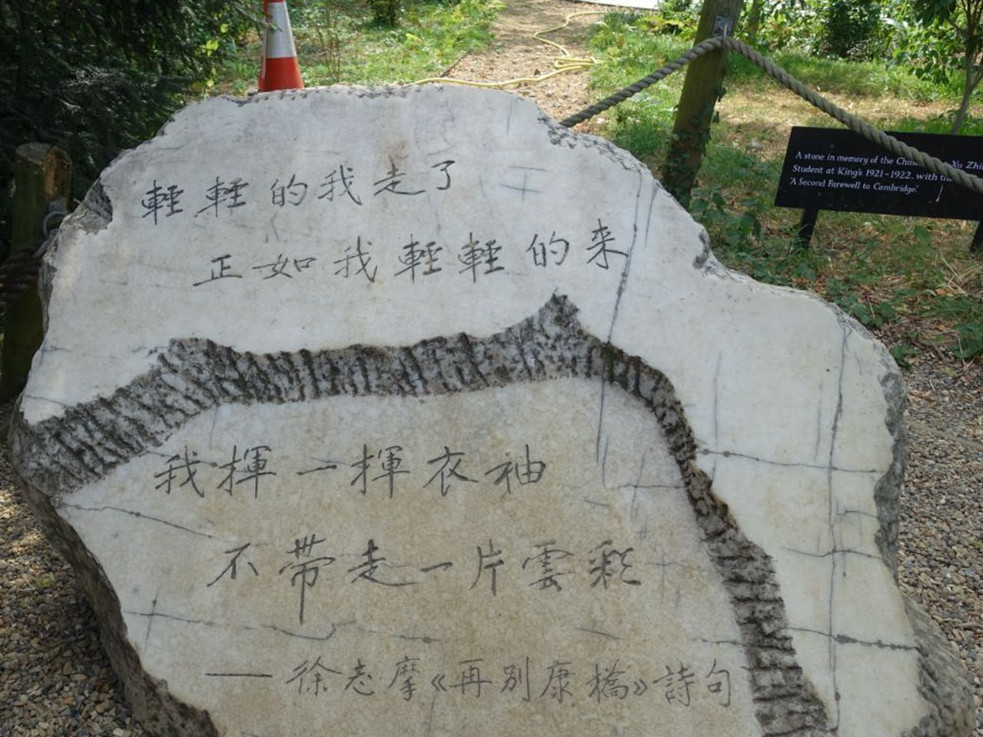 輕輕的我走了
正如我輕輕的来
我揮一揮衣袖
不帶走一片雲彩
——徐志摩《再別康橋》詩句
A stone in memory of the
Xu
Student at King's 1921-1922, with
'A Second Farewell to Cambridge.'